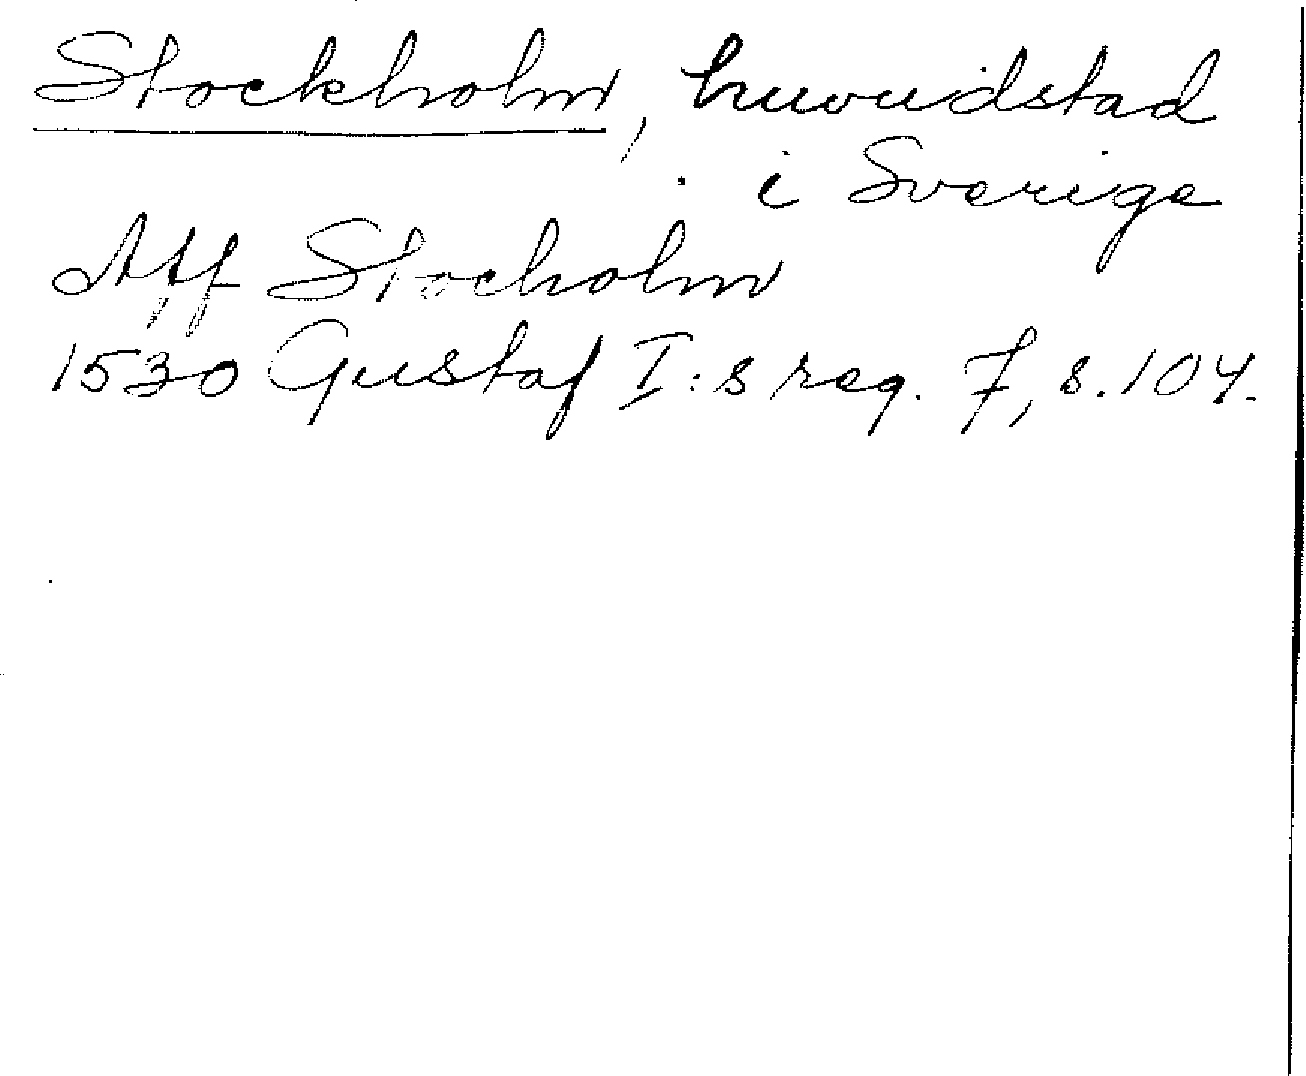 Stockholm, huvudstad
i Sverige
Aff Stocholm
1530 Gustaf I:s reg. 7, s. 104.